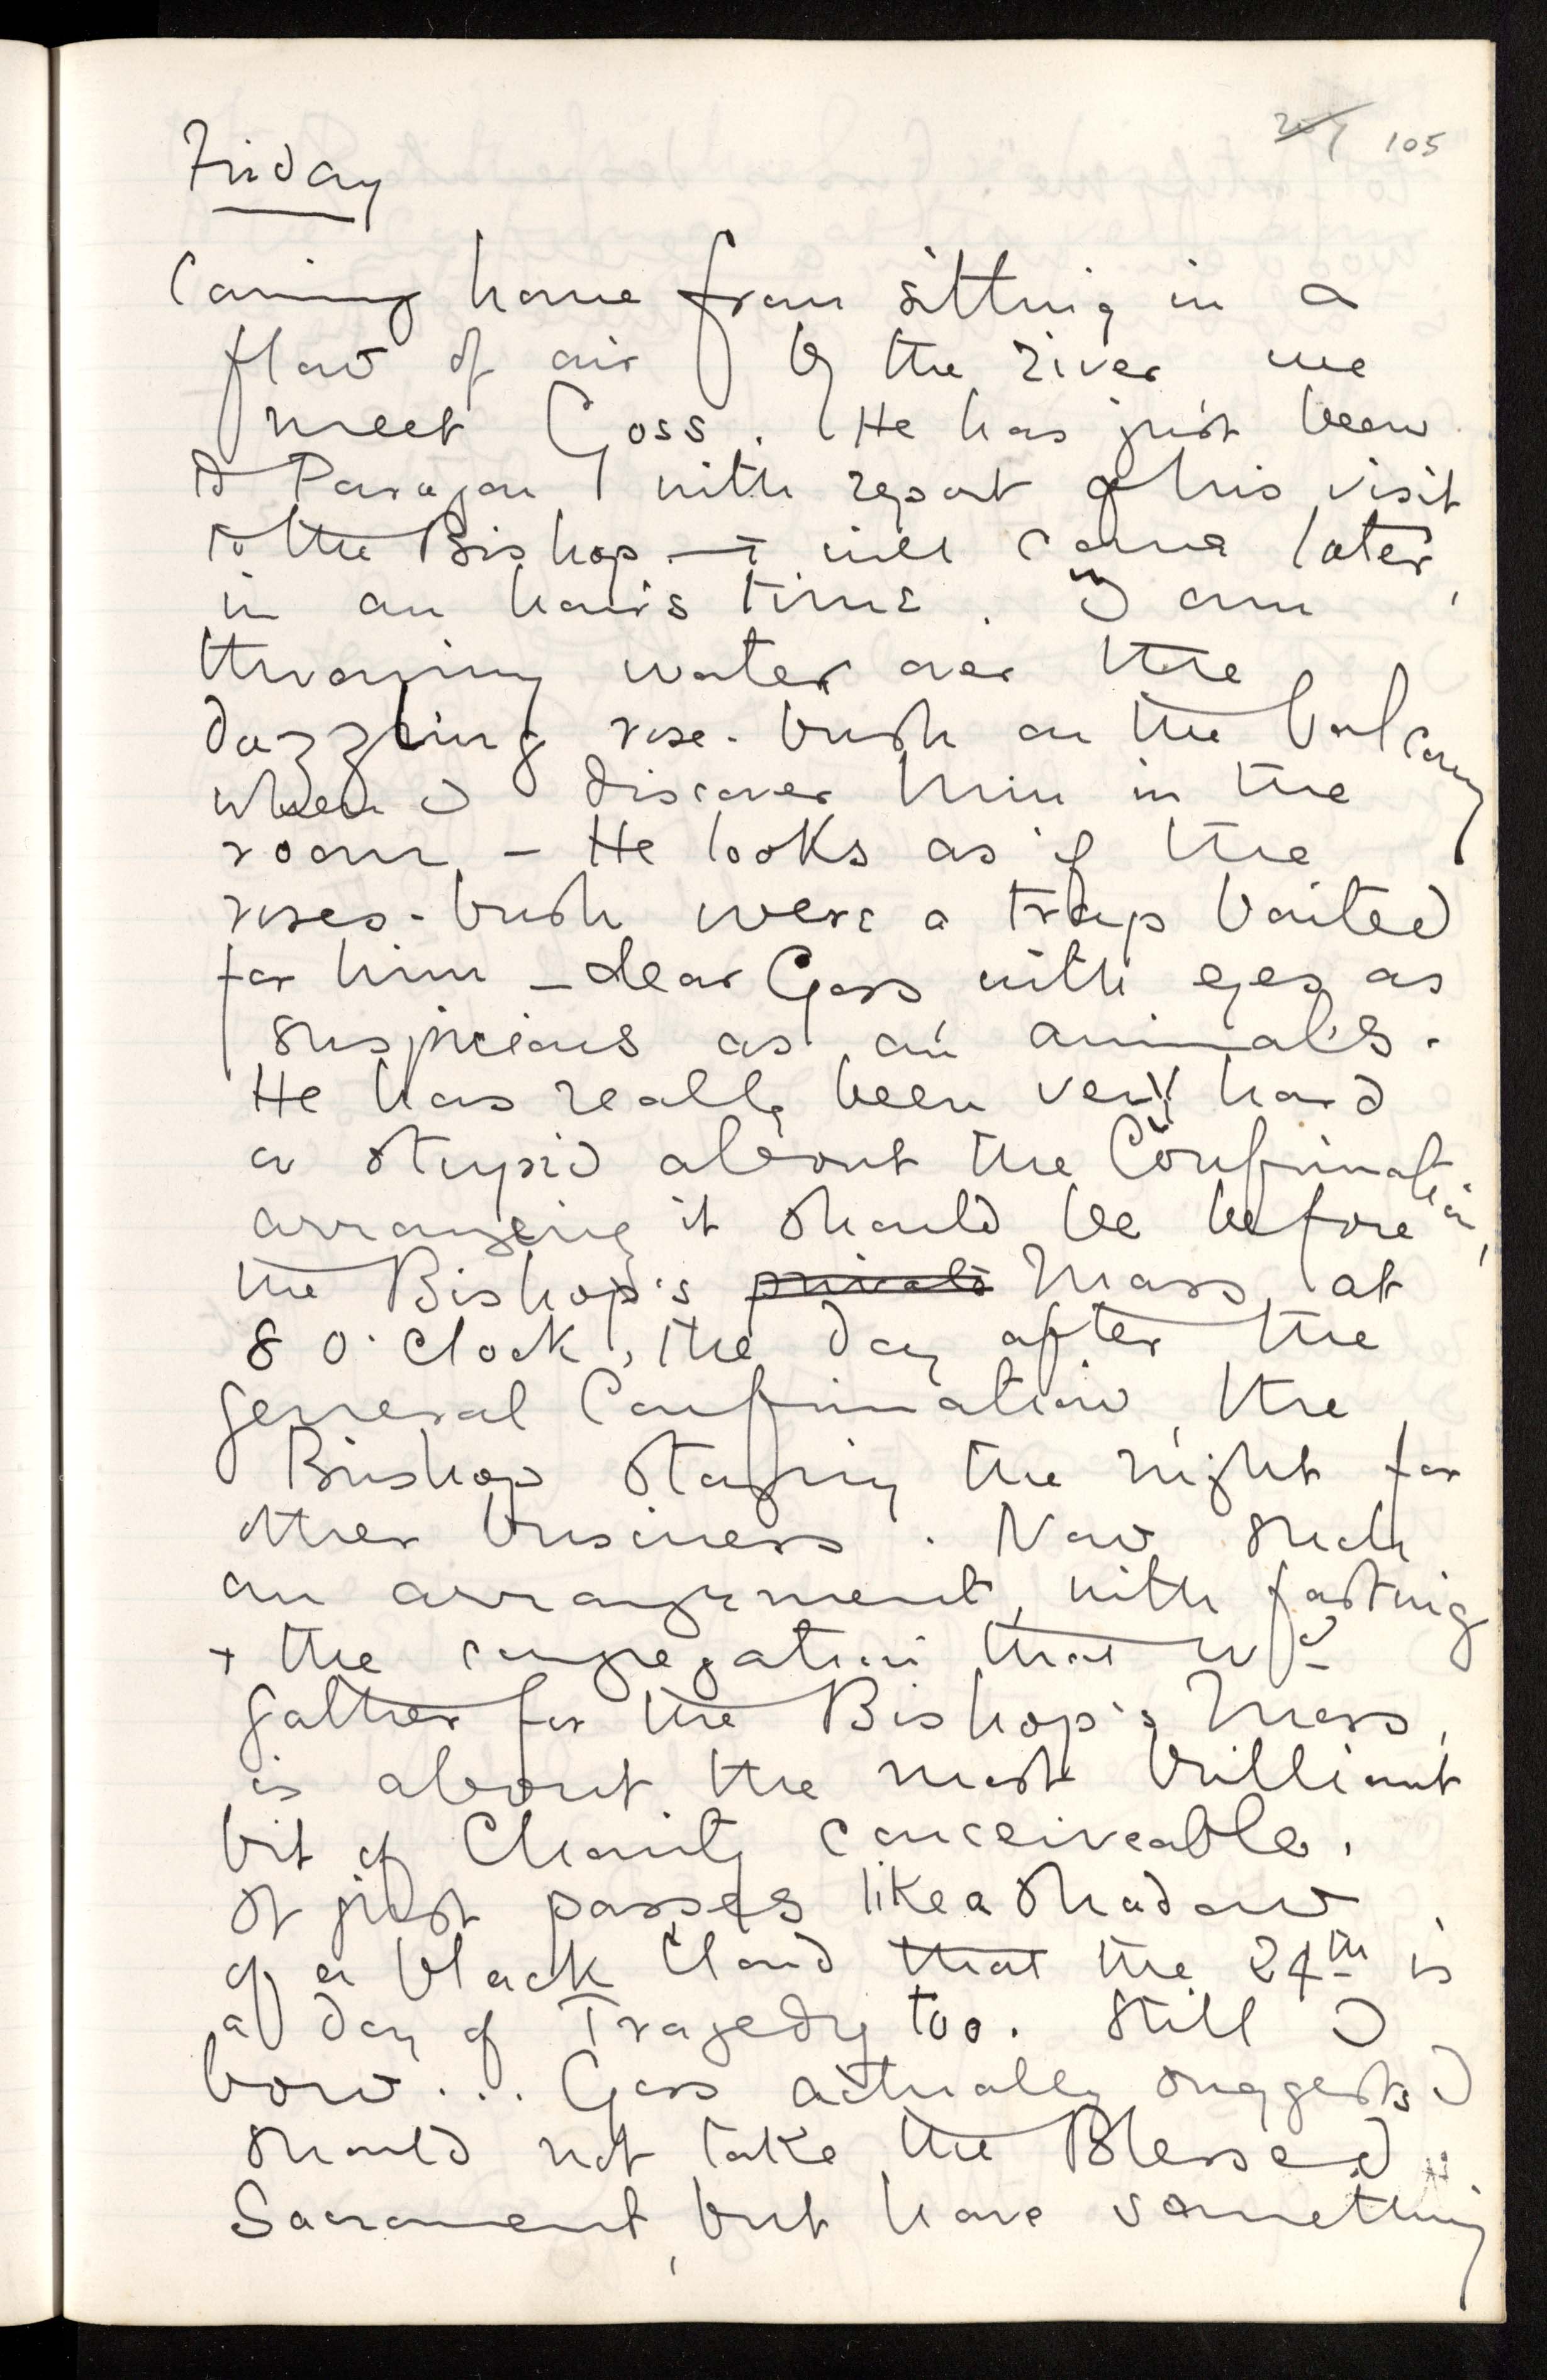 105
Friday
Coming home from sitting in a
flow of air by the river we
meet Goss. He has just been
to Paragon with report of his visit
to the Bishop — + will come later,
in an hour's time. I am
throwing water over the
dazzling rose-bush on the balcony
when I discover him in the
room — He looks as if the
roses-bush were a trap baited
for him — dear Goss with eyes as
suspicious as an animal's.
He has really been very hard
a stupid about the Confirmation,
arranging it should be before
the Bishop's private Mass at
8 o'clock, the day after the
general Confirmation, the
Bishop staying the night for
other business. Now such
an arrangement, with fasting
+ the congregation that wd
gather for the Bishop's Mass,
is about the most brilliant
bit of Charity conceiveable.
It just passes like a shadow
of a black cloud that the 24th is
a day of Tragedy too. Still I
bow... Goss actually suggests I
should not take the Blessed
Sacrament, but have something